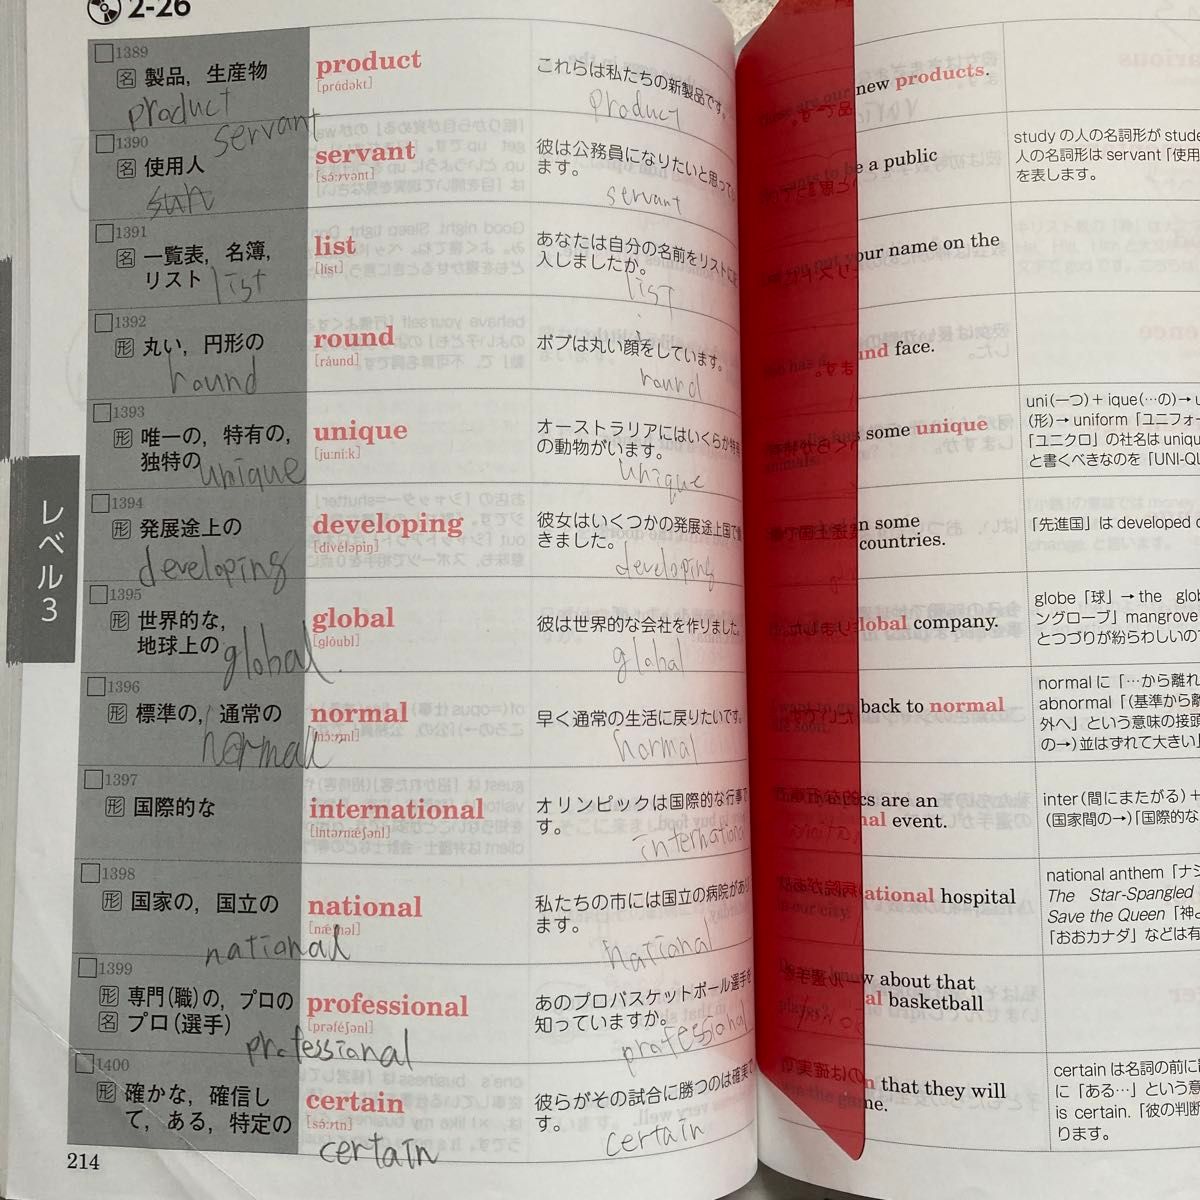 2-26
1389
名 製品，生産物
product
product
[prɑ́dəkt]
これらは私たちの新製品です。
product
new products.
servant
1390
名 使用人
servant
[sə́ːrvənt]
彼は公務員になりたいと思って
ます。
servant
be a public
study の人の名詞形が stude
人の名詞形は servant「使用
を表します。
1391
名 一覧表，名簿，
リスト
list
list
[líst]
あなたは自分の名前をリストに記
入しましたか。
list
your name on the
1392
形 丸い，円形の
round
round
[ráund]
ボブは丸い顔をしています。
round
und face.
1393
形 唯一の，特有の，
独特の
unique
unique
[juːníːk]
オーストラリアにはいくらか特有
の動物がいます。
unique
some unique
animals.
uni(一つ)＋ique(…の)→u
(形)→uniform「ユニフォー
「ユニクロ」の社名は uniqu
と書くべきなのを「UNI-QL
1394
形 発展途上の
developing
developing
[divéləpiŋ]
彼女はいくつかの発展途上国で働
きました。
developing
n some
countries.
「先進国」は developed c
1395
形 世界的な，
地球上の
global
global
[glóubl]
彼は世界的な会社を作りました。
global
lobal company.
globe「球」→the glob
ングローブ」mangrove
とつづりが紛らわしいので
1396
形 標準の，通常の
normal
normal
[nɔ́ːrml]
早く通常の生活に戻りたいです。
normal
back to normal
normal に「…から離れ
abnormal「(基準から離
外へ」という意味の接頭
の→)並はずれて大きい」
1397
形 国際的な
international
[intərnǽʃənl]
オリンピックは国際的な行事で
す。
international
are an
nal event.
inter(間にまたがる)＋
(国家間の→)「国際的な
1398
形 国家の，国立の
national
national
[nǽʃənl]
私たちの市には国立の病院があり
ます。
national
ational hospital
in our city.
national anthem「ナシ
The Star-Spangled
Save the Queen「神よ
「おおカナダ」などは有
1399
形 専門(職)の，プロの
名 プロ(選手)
professional
professional
[prəféʃənl]
あのプロバスケットボール選手を
知っていますか。
professional
know about that
al basketball
1400
形 確かな，確信し
て，ある，特定の
certain
certain
[sə́ːrtn]
彼らがその試合に勝つのは確実で
す。
certain
n that they will
me.
certain は名詞の前に
に「ある…」という意
is certain.「彼の判断
ります。
レベル3
214